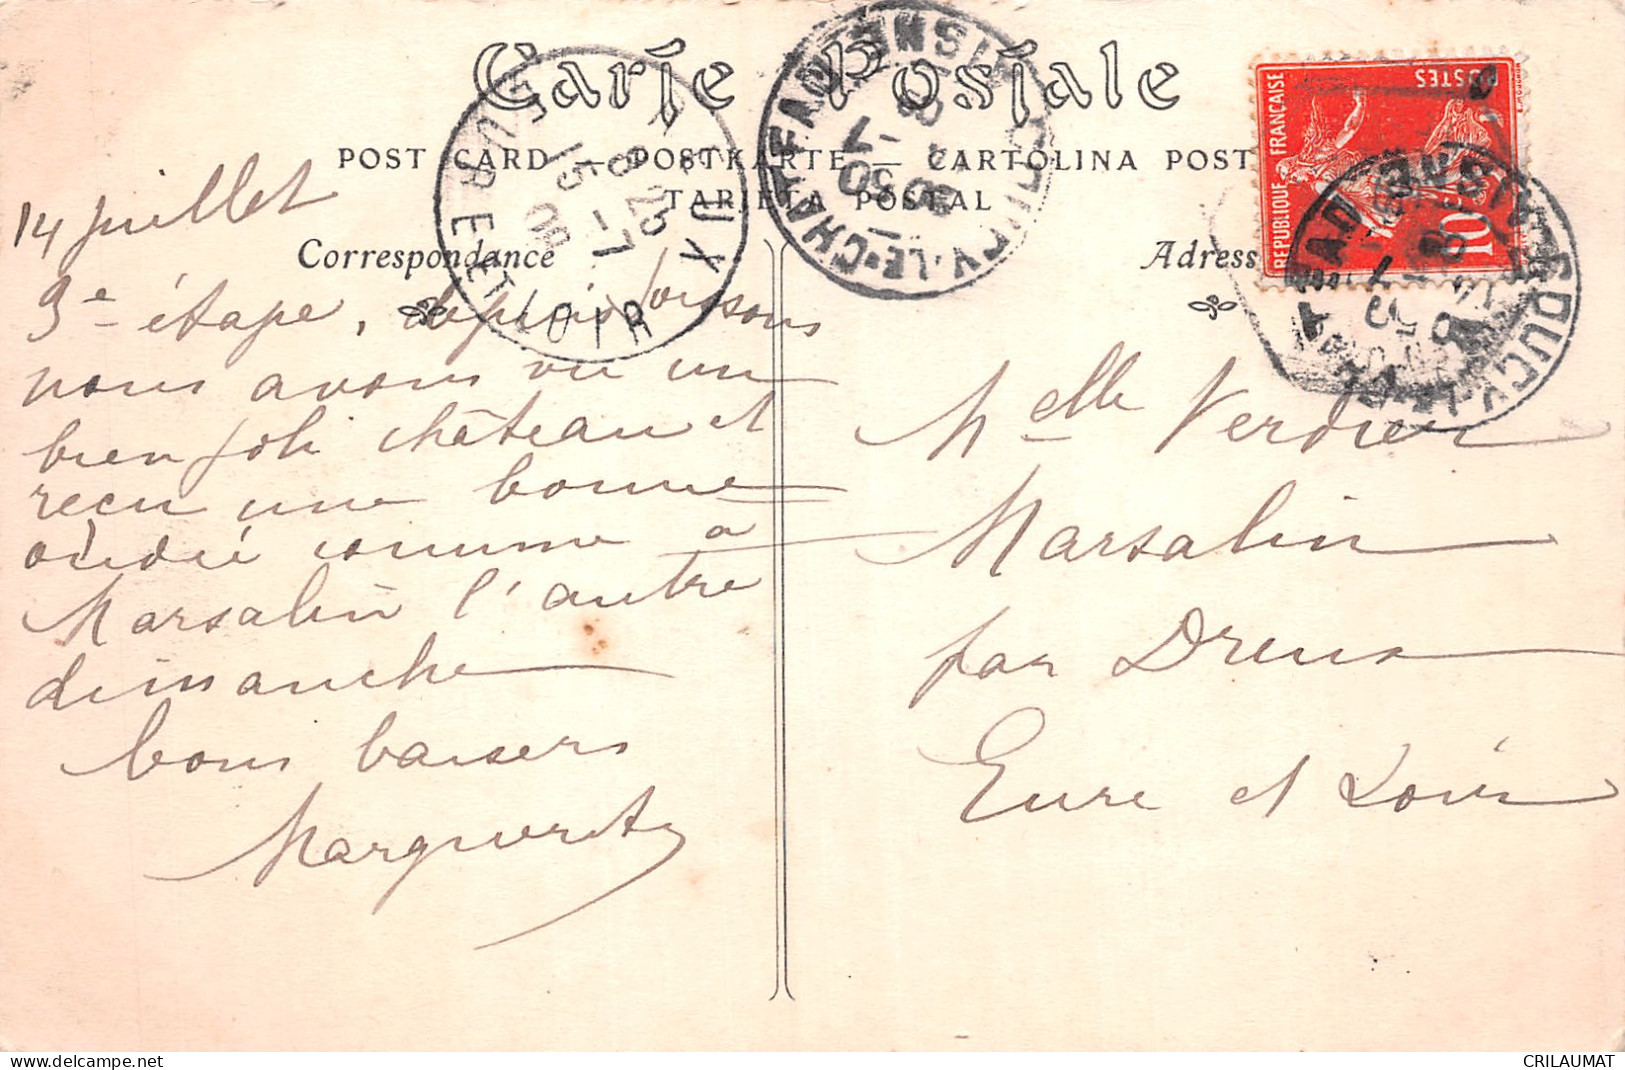 Carte Postale
POST CARD — POSTKARTE — CARTOLINA POST
TARJETA POSTAL
Correspondance
Adresse
14 juillet
3e étape, depuis Soissons
nous avons vu un
bien joli château et
reçu une bonne
ondée comme à
Marsalin l'autre
dimanche
bons baisers
Marguerite
Melle Verdier
Marsalin
par Dreux
Eure et Loir
REPUBLIQUE FRANÇAISE
POSTES
10
COUCY-LE-CHATEAU AISNE
EURE ET LOIR
8 25
15 -7
09
delcampe.net
CRILAUMAT